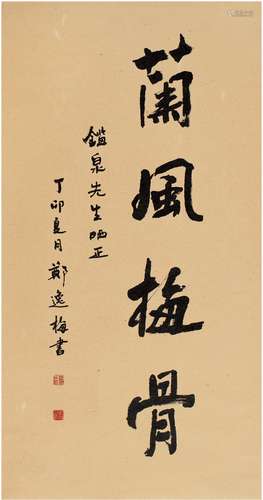 蘭風梅骨
鑑泉先生哂正
丁卯夏月 鄭逸梅書